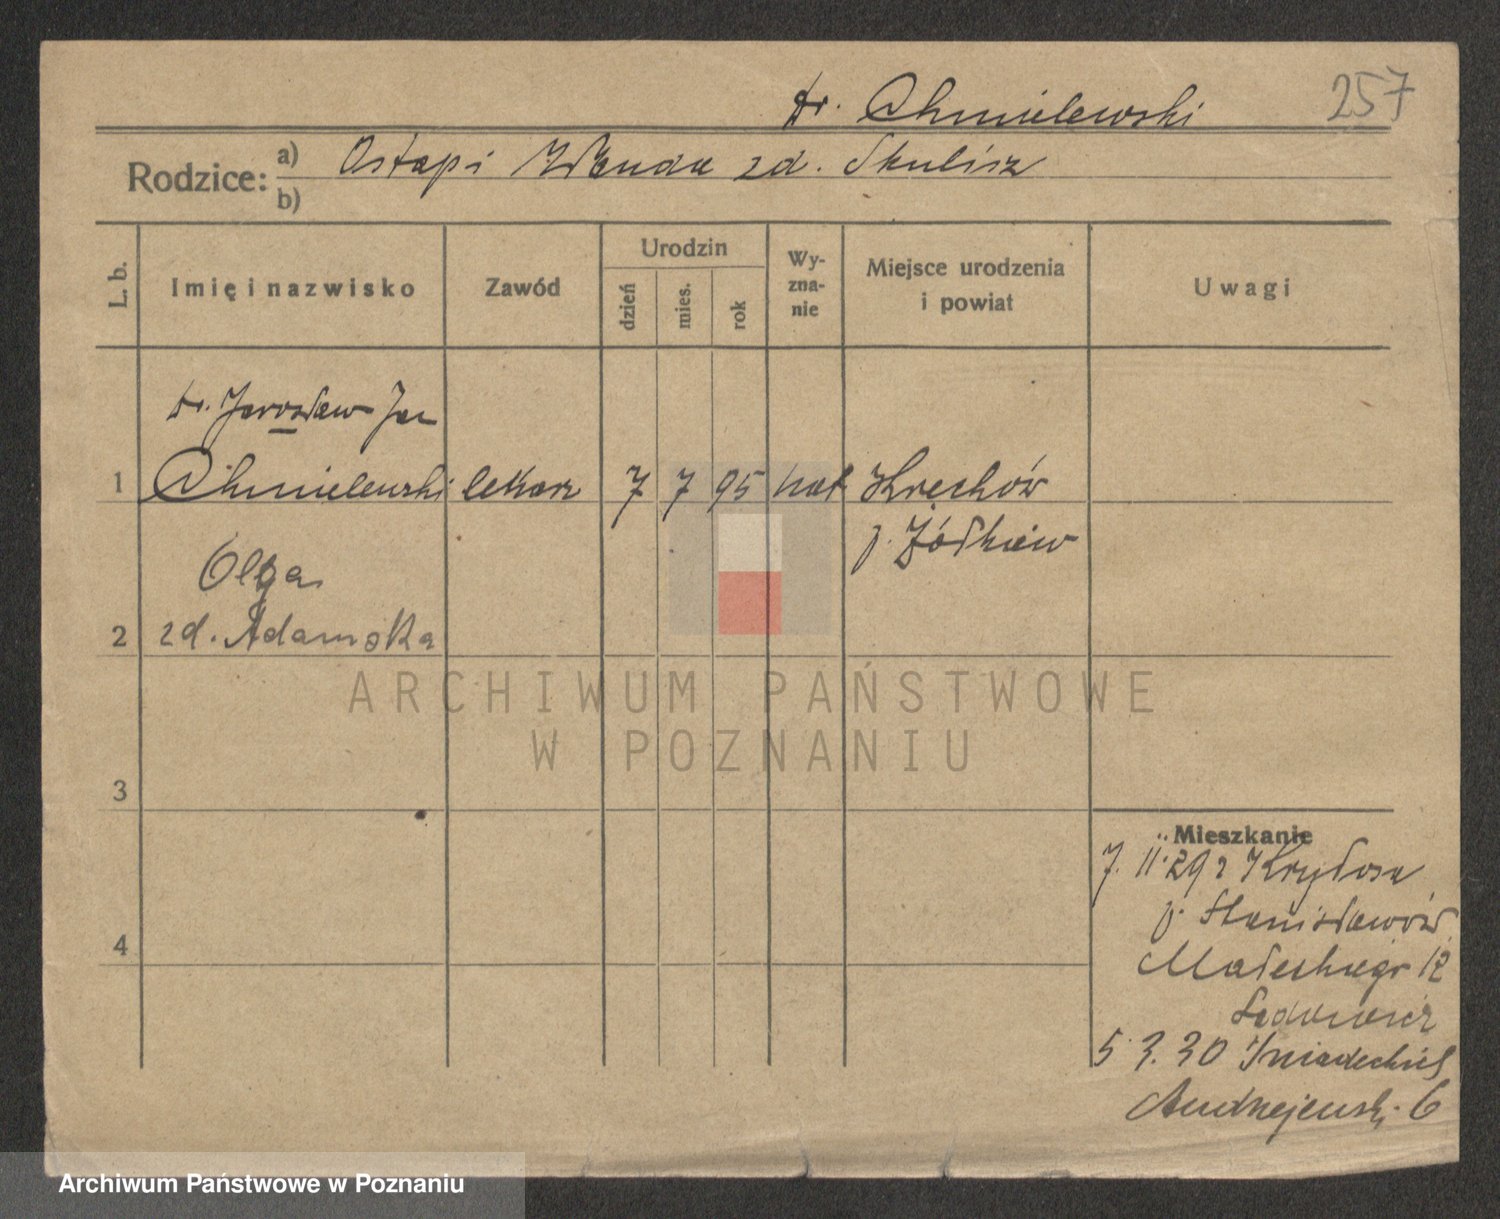 257
dr. Chmielewski
Rodzice: a) Ostap i Wanda zd. Skulisz
b)
L. b.
Imię i nazwisko
Zawód
Urodzin
dzień
mies.
rok
Wy-
zna-
nie
Miejsce urodzenia
i powiat
Uwagi
dr. Jarosław Jan
1 Chmielewski lekarz 7 7 95 Krechów
p. Żółkiew
Olga
2 zd. Adamska
3
4
Mieszkanie
7. II. 29 z Kryłosa
p. Stanisławów
Małeckiego 12
5. 3. 30 Śniadeckich
Andrzejewski 6
ARCHIWUM PAŃSTWOWE
W POZNANIU
Archiwum Państwowe w Poznaniu